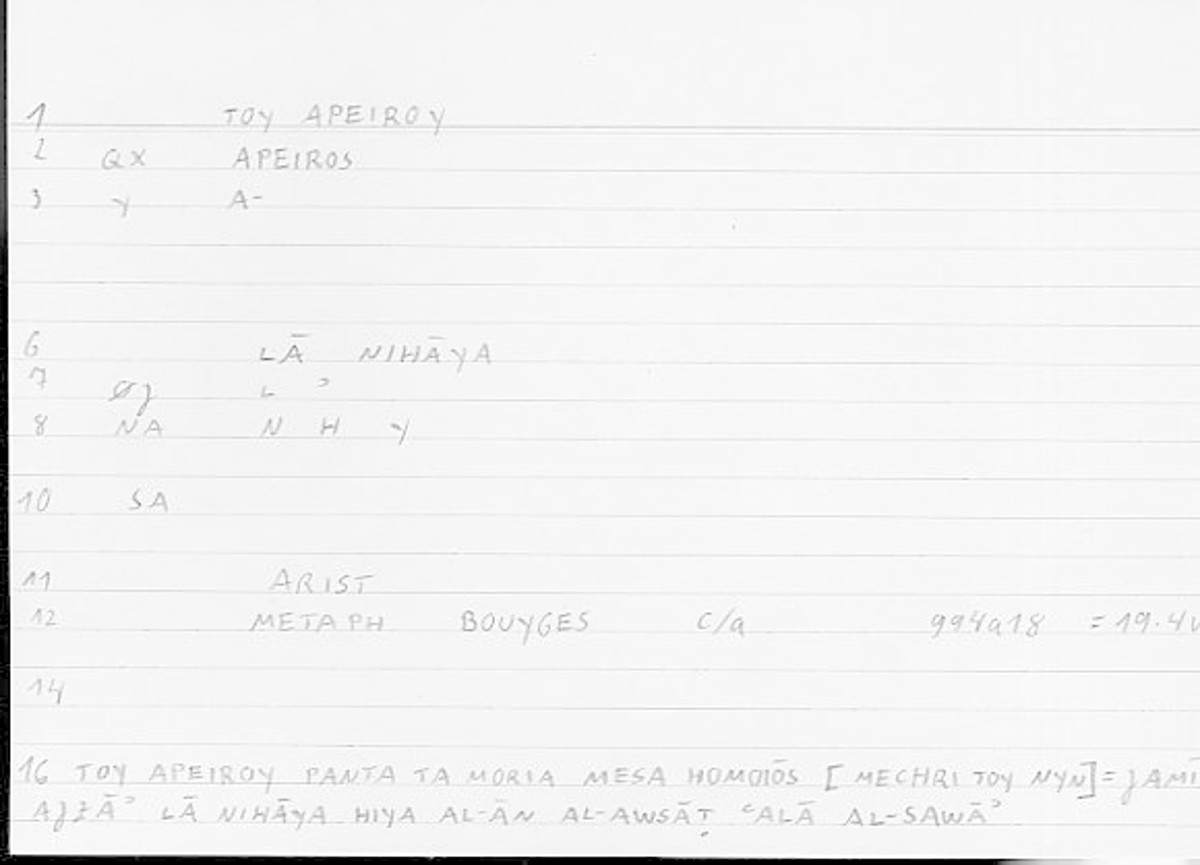 1 TOY APEIROY
2 QX APEIROS
3 Y A-
6 LĀ NIHĀYA
7 L ʾ
8 NA N H Y
10 SA
11 ARIST
12 METAPH BOUYGES C/a 994a18 = 19.4
14
16 TOY APEIROY PANTA TA MORIA MESA HOMOIŌS [MECHRI TOY NYN] = ǧAMĪ
AǧZĀʾ LĀ NIHĀYA HIYA AL-ĀN AL-AWSĀṬ ʿALĀ AL-SAWĀʾ